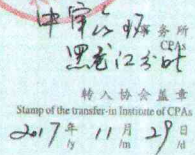 中审众环 事务所
CPAs
黑龙江分所
转入协会盖章
Stamp of the transfer-in Institute of CPAs
2017 年 11 月 29 日
/y /m /d